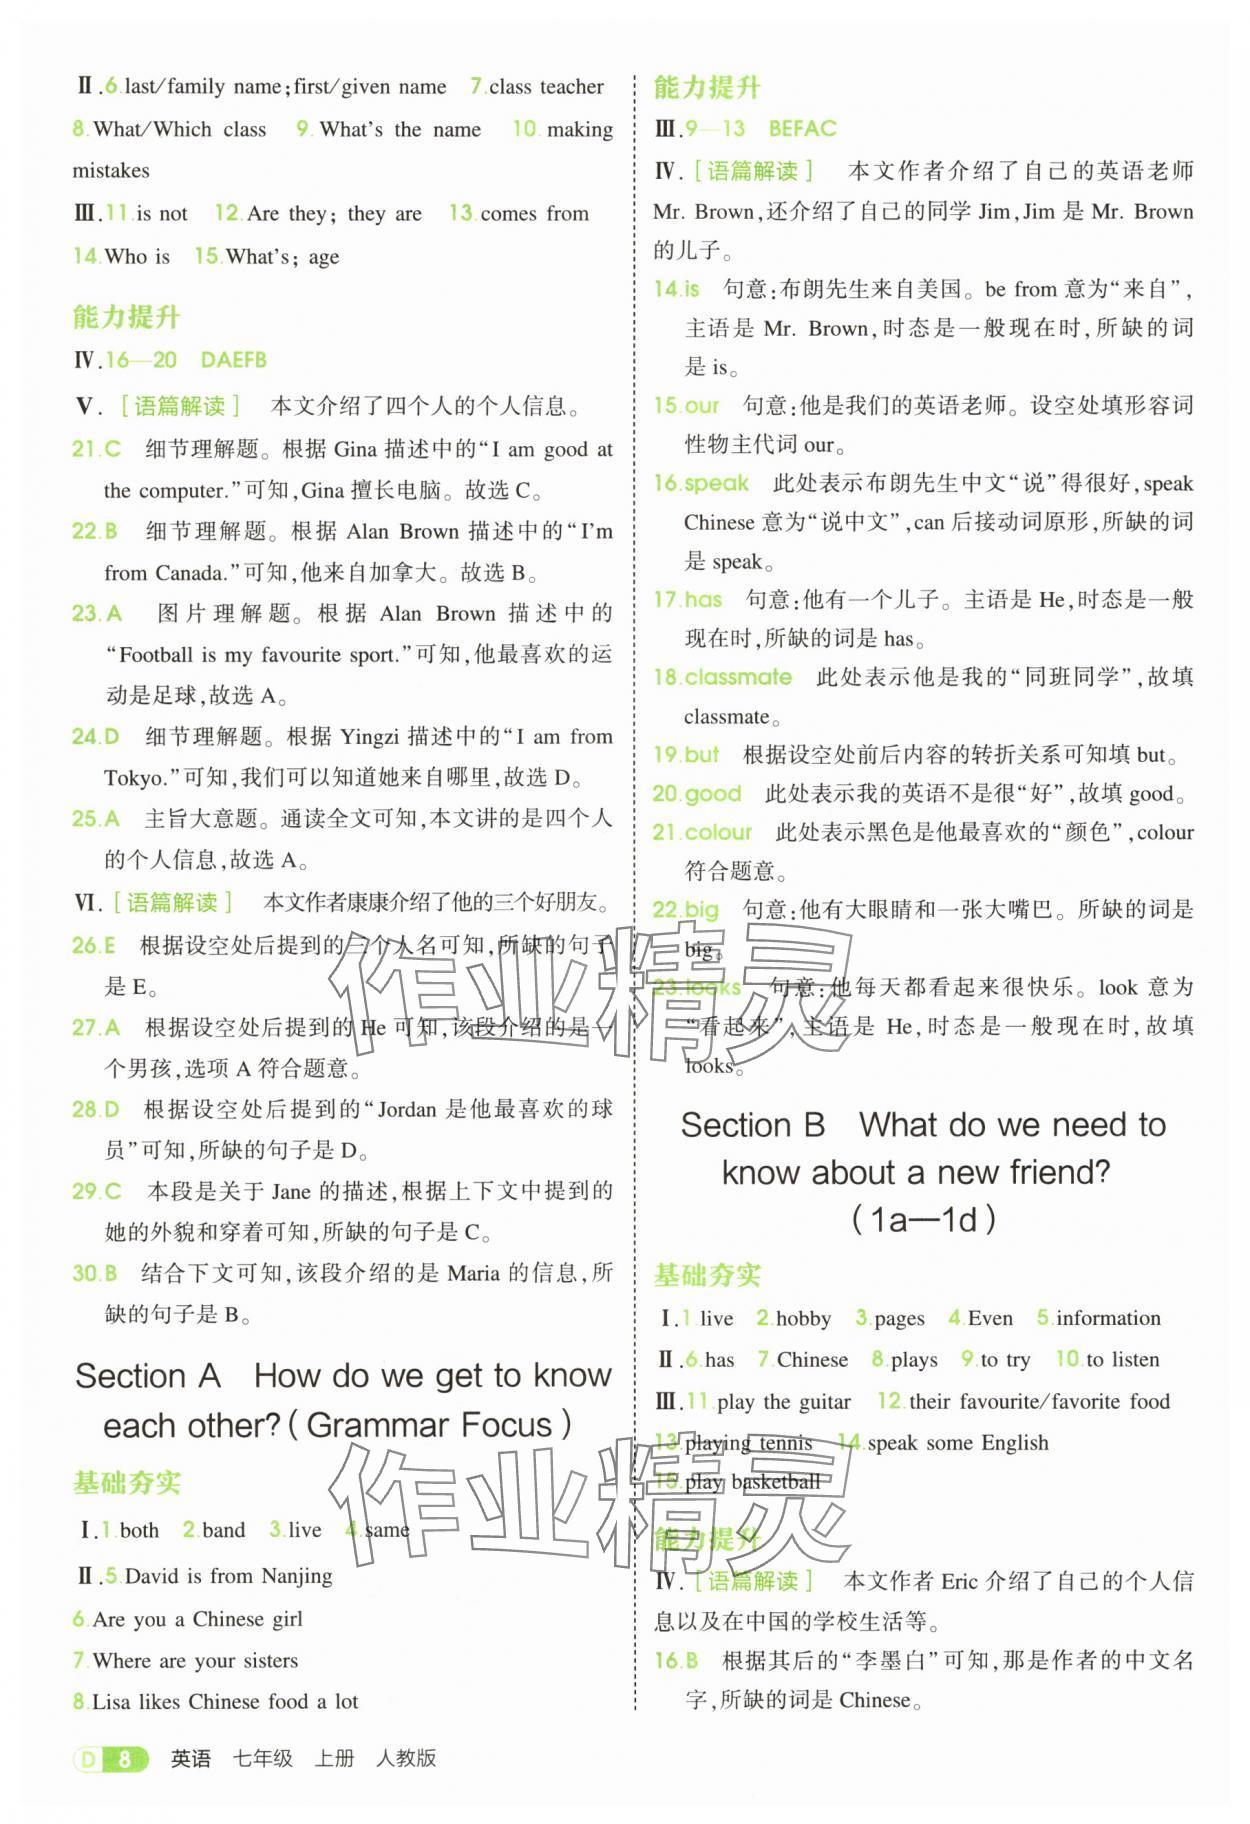 Ⅱ.6.last/family name;first/given name 7.class teacher
8.What/Which class 9.What's the name 10.making
mistakes
Ⅲ.11.is not 12.Are they; they are 13.comes from
14.Who is 15.What's; age
能力提升
Ⅳ.16—20 DAEFB
Ⅴ.[语篇解读] 本文介绍了四个人的个人信息。
21.C 细节理解题。根据 Gina 描述中的“I am good at
the computer.”可知,Gina 擅长电脑。故选 C。
22.B 细节理解题。根据 Alan Brown 描述中的“I'm
from Canada.”可知,他来自加拿大。故选 B。
23.A 图片理解题。根据 Alan Brown 描述中的
“Football is my favourite sport.”可知,他最喜欢的运
动是足球,故选 A。
24.D 细节理解题。根据 Yingzi 描述中的“I am from
Tokyo.”可知,我们可以知道她来自哪里,故选 D。
25.A 主旨大意题。通读全文可知,本文讲的是四个人
的个人信息,故选 A。
Ⅵ.[语篇解读] 本文作者康康介绍了他的三个好朋友。
26.E 根据设空处后提到的三个人名可知,所缺的句子
是 E。
27.A 根据设空处后提到的 He 可知,该段介绍的是一
个男孩,选项 A 符合题意。
28.D 根据设空处后提到的“Jordan 是他最喜欢的球
员”可知,所缺的句子是 D。
29.C 本段是关于 Jane 的描述,根据上下文中提到的
她的外貌和穿着可知,所缺的句子是 C。
30.B 结合下文可知,该段介绍的是 Maria 的信息,所
缺的句子是 B。
Section A How do we get to know
each other?(Grammar Focus)
基础夯实
Ⅰ.1.both 2.band 3.live 4.same
Ⅱ.5.David is from Nanjing
6.Are you a Chinese girl
7.Where are your sisters
8.Lisa likes Chinese food a lot
能力提升
Ⅲ.9—13 BEFAC
Ⅳ.[语篇解读] 本文作者介绍了自己的英语老师
Mr. Brown,还介绍了自己的同学 Jim,Jim 是 Mr. Brown
的儿子。
14.is 句意:布朗先生来自美国。be from 意为“来自”,
主语是 Mr. Brown,时态是一般现在时,所缺的词
是 is。
15.our 句意:他是我们的英语老师。设空处填形容词
性物主代词 our。
16.speak 此处表示布朗先生中文“说”得很好,speak
Chinese 意为“说中文”,can 后接动词原形,所缺的词
是 speak。
17.has 句意:他有一个儿子。主语是 He,时态是一般
现在时,所缺的词是 has。
18.classmate 此处表示他是我的“同班同学”,故填
classmate。
19.but 根据设空处前后内容的转折关系可知填 but。
20.good 此处表示我的英语不是很“好”,故填 good。
21.colour 此处表示黑色是他最喜欢的“颜色”,colour
符合题意。
22.big 句意:他有大眼睛和一张大嘴巴。所缺的词是
big。
23.looks 句意:他每天都看起来很快乐。look 意为
“看起来”,主语是 He,时态是一般现在时,故填
looks。
Section B What do we need to
know about a new friend?
(1a—1d)
基础夯实
Ⅰ.1.live 2.hobby 3.pages 4.Even 5.information
Ⅱ.6.has 7.Chinese 8.plays 9.to try 10.to listen
Ⅲ.11.play the guitar 12.their favourite/favorite food
13.playing tennis 14.speak some English
15.play basketball
能力提升
Ⅳ.[语篇解读] 本文作者 Eric 介绍了自己的个人信
息以及在中国的学校生活等。
16.B 根据其后的“李墨白”可知,那是作者的中文名
字,所缺的词是 Chinese。
作业精灵
作业精灵
D 8 英语 七年级 上册 人教版